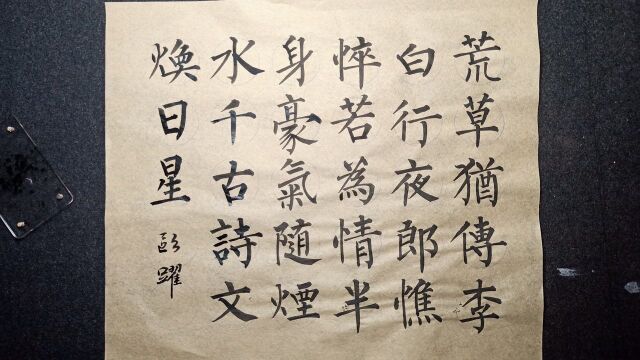 荒草猶傳李
白行夜郎憔
悴若為情半
身豪氣隨煙
水千古詩文
煥日星
歐躍